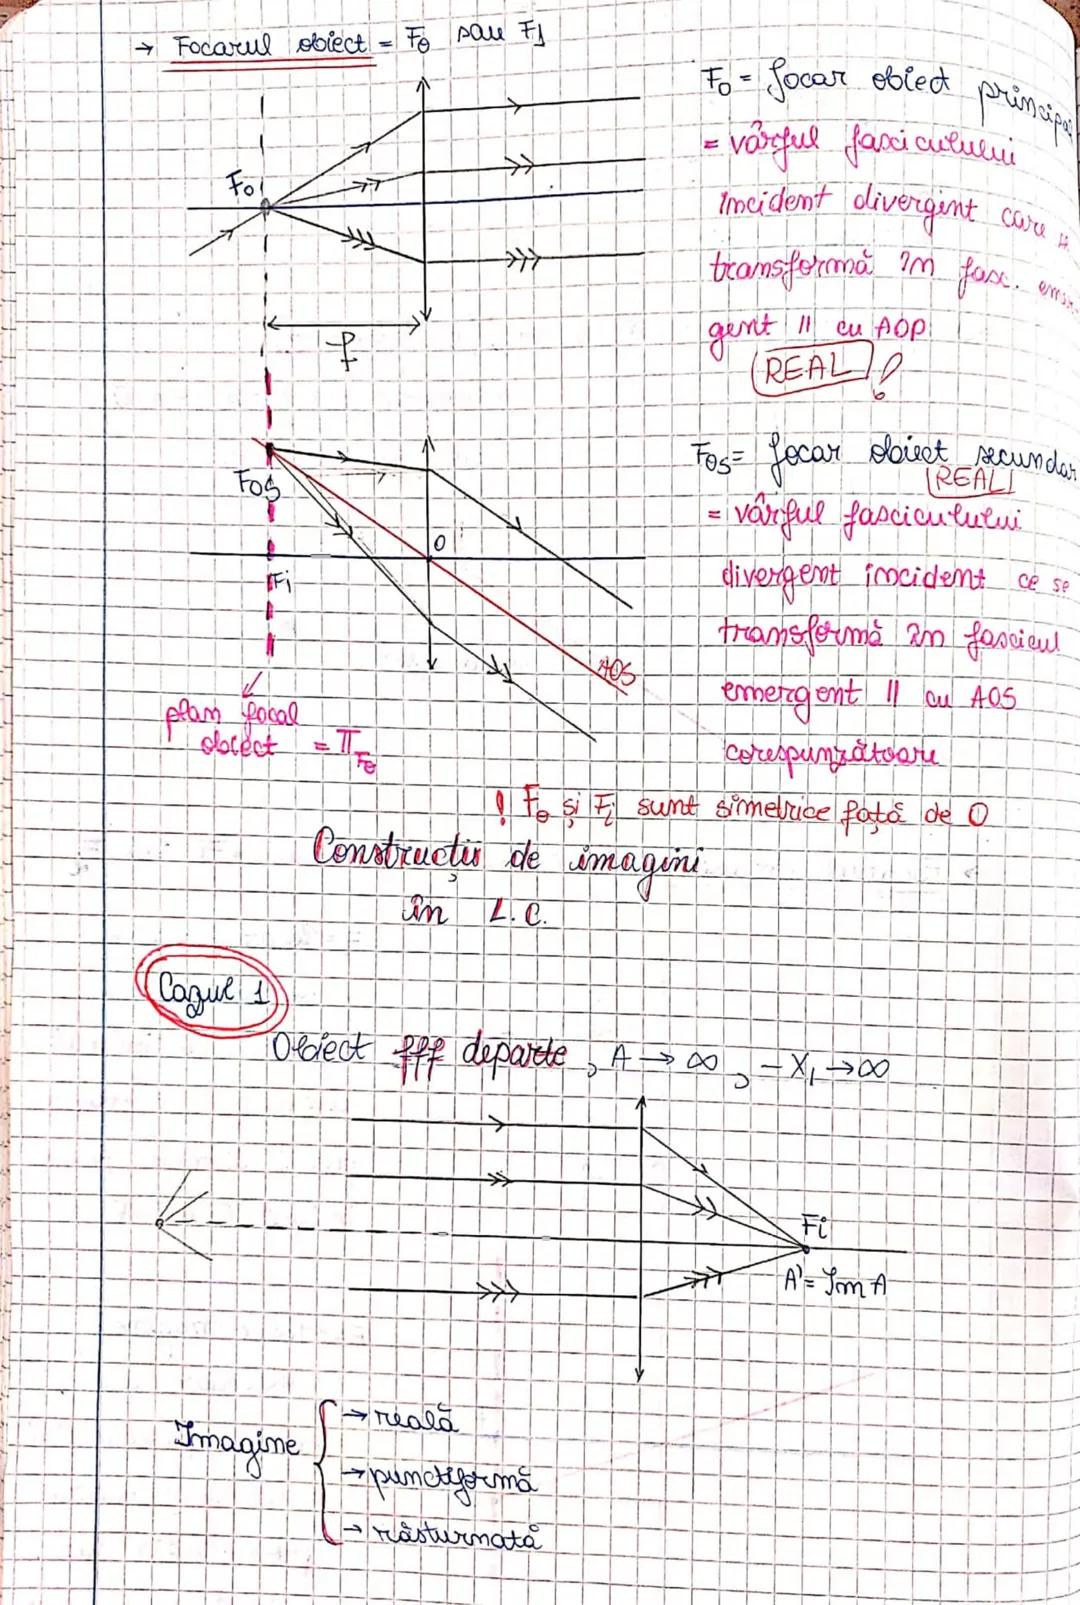 → Focarul obiect = Fo sau F1
Fo = focar obiect principal
= vârful fasciculului
incident divergent care
transformă în fasc.
gent || cu AOP
REAL !
Fo
f
FOS = focar obiect secundar
REAL
= vârful fasciculului
divergent incident ce se
transformă în fascicul
emergent || cu AOS
corespunzătoare
FOS
O
Fi
AOS
plan focal
obiect = πFo
! Fo și Fi sunt simetrice față de O
Construcții de imagini
în L.C.
Cazul 1
Obiect fff departe, A → ∞, -X1 → ∞
Fi
A' = Im A
Imagine
→ reală
→ punctiformă
→ răsturnată